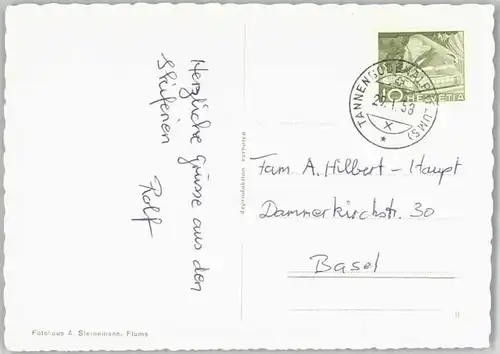 Herzliche Grüsse aus den
Skiferien
Rolf
Fotohaus A. Steinemann, Flums
Reproduktion verboten
10 HELVETIA
TANNENBODENALP (FLUMS)
29.1.58
X
Fam. A. Hilbert - Haupt
Dammerkirchstr. 30
Basel